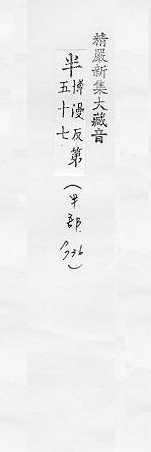 精嚴新集大藏音
半博漫反第
五十七
(半部